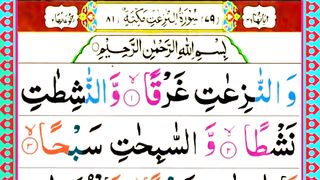 (٧٩) سُوْرَةُ النّٰزِعٰتِ مَكِّيَّةٌ (٨١)
بِسْمِ اللّٰهِ الرَّحْمٰنِ الرَّحِيْمِ
وَالنّٰزِعٰتِ غَرْقًا ۙ﴿١﴾ وَّالنّٰشِطٰتِ
نَشْطًا ۙ﴿٢﴾ وَّ السّٰبِحٰتِ سَبْحًا ۙ﴿٣﴾